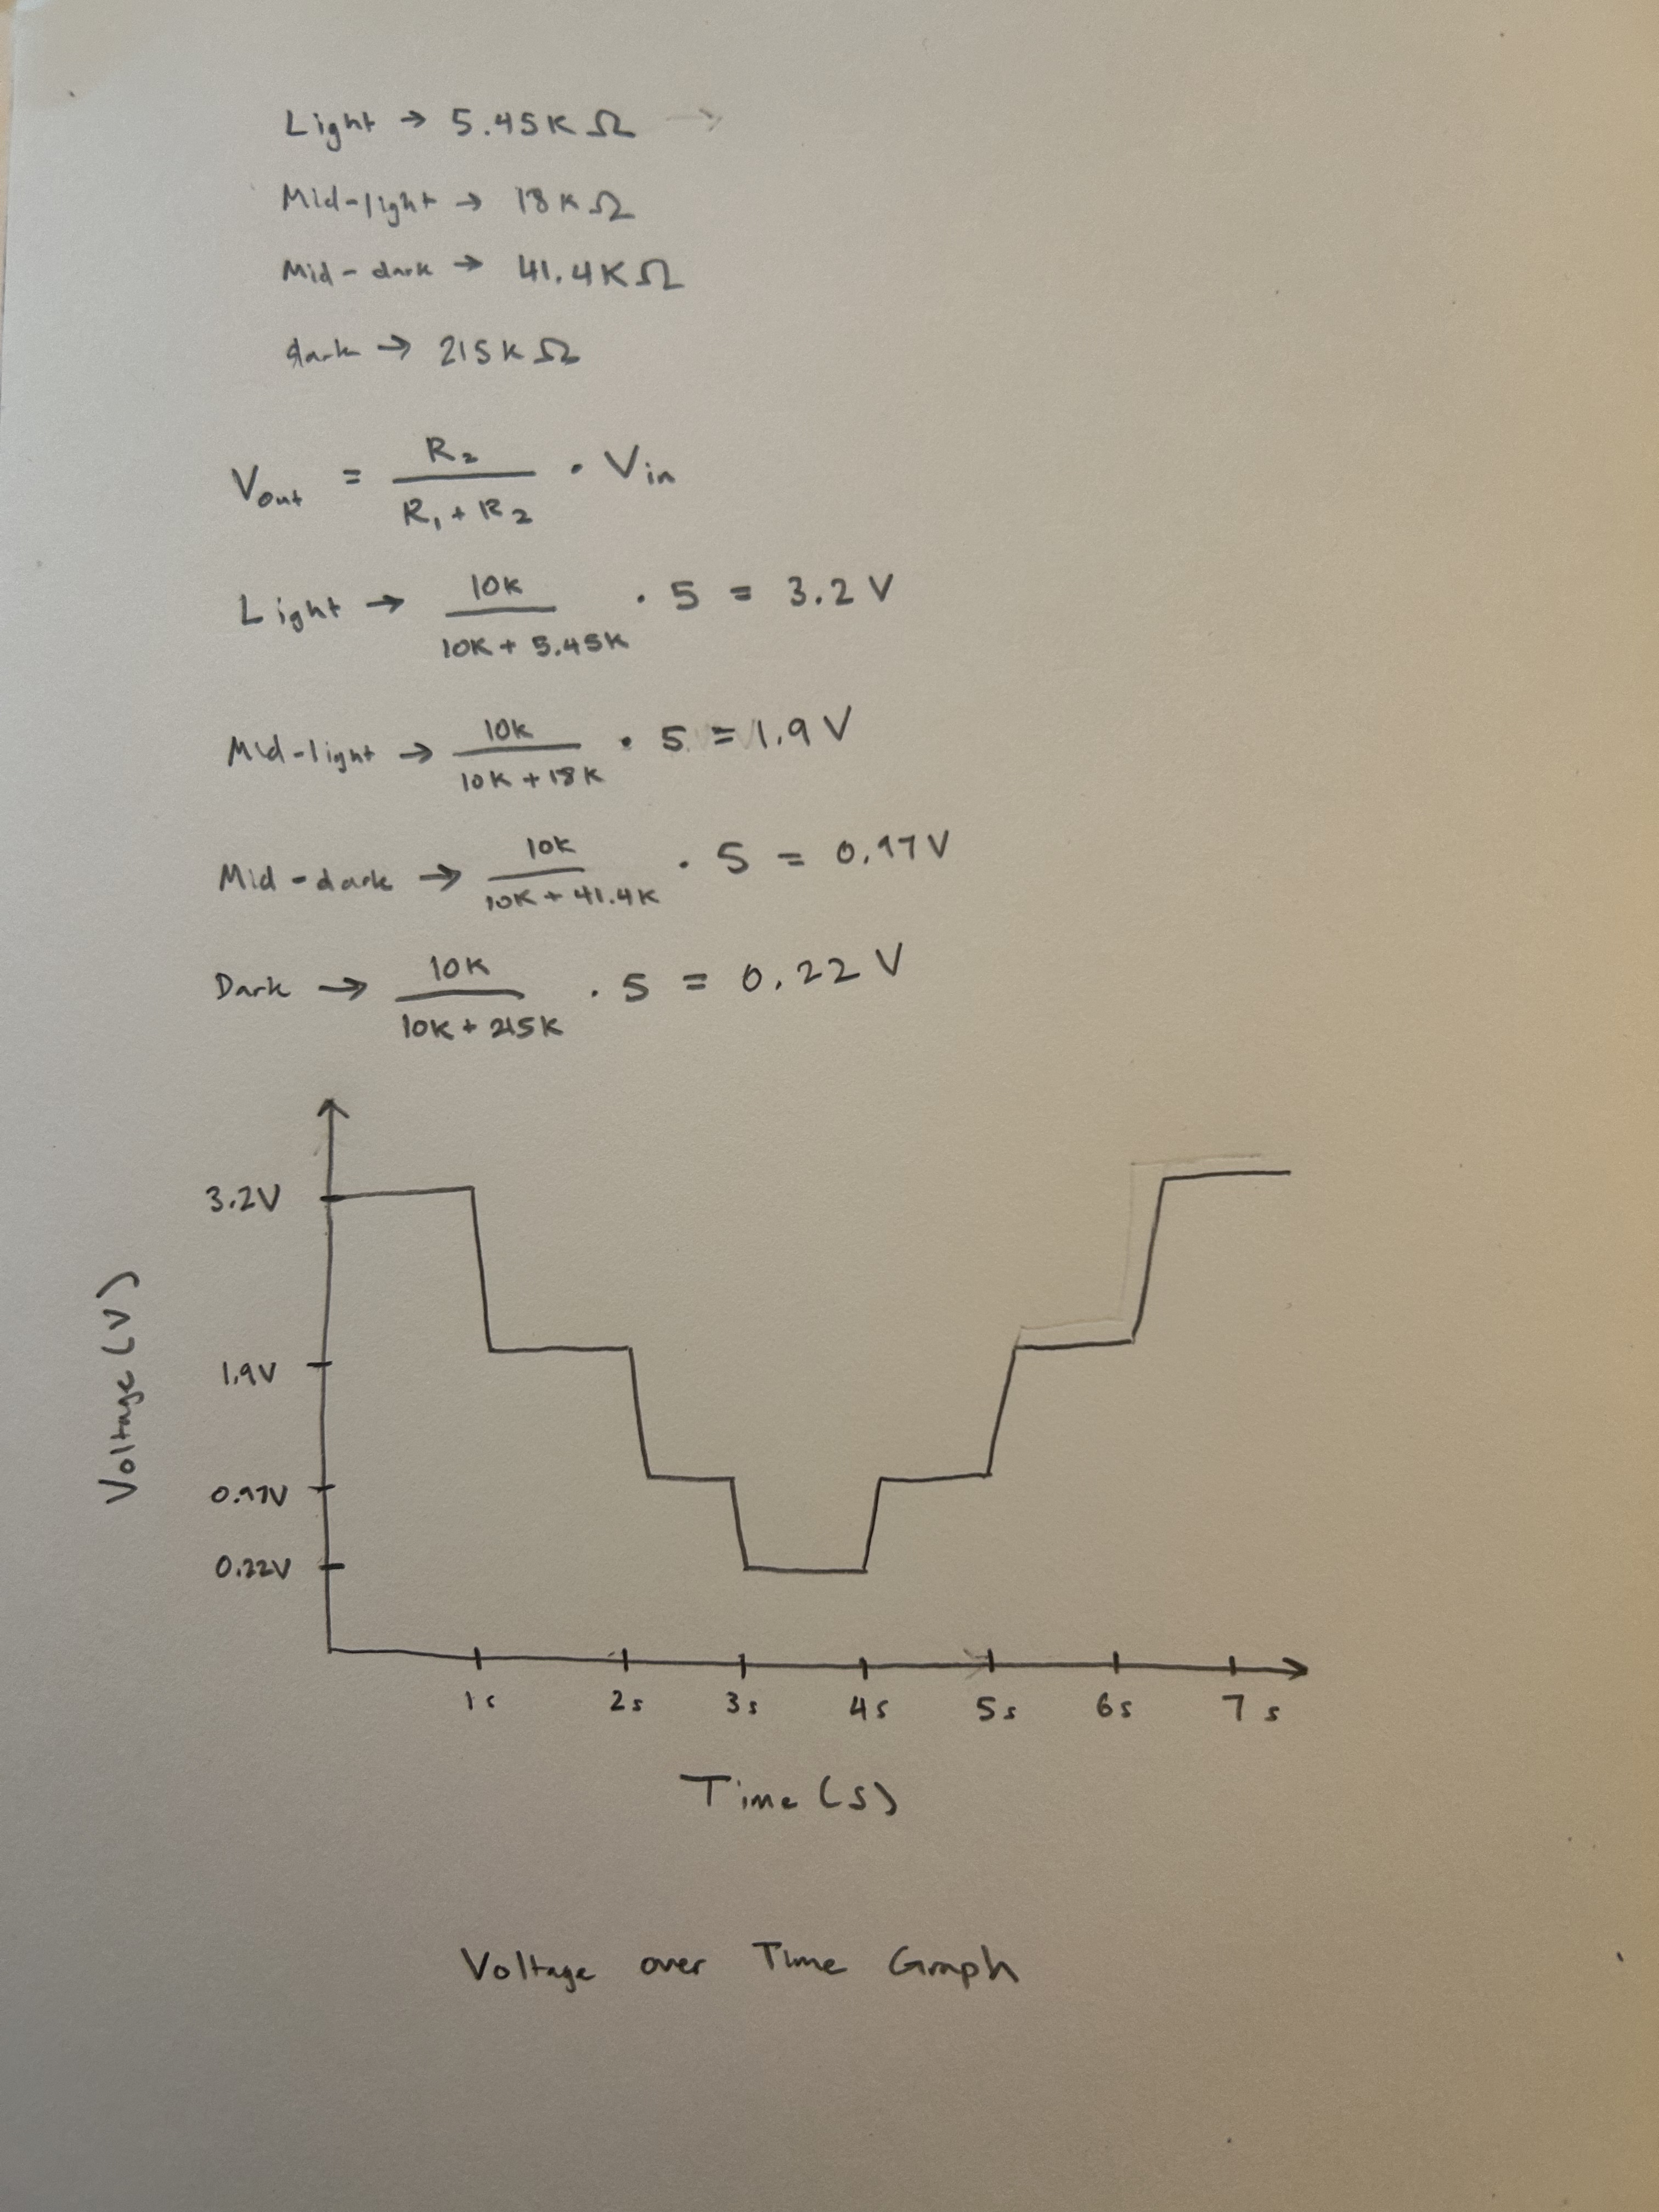 Light → 5.45K Ω →
Mid-light → 18K Ω
Mid-dark → 41.4K Ω
dark → 215K Ω
Vout = R₂ / (R₁ + R₂) · Vin
Light → 10K / (10K + 5.45K) · 5 = 3.2 V
Mid-light → 10K / (10K + 18K) · 5 = 1.9 V
Mid-dark → 10K / (10K + 41.4K) · 5 = 0.97 V
Dark → 10K / (10K + 215K) · 5 = 0.22 V
3.2V
1.9V
0.97V
0.22V
Voltage (V)
1s 2s 3s 4s 5s 6s 7s
Time (s)
Voltage over Time Graph